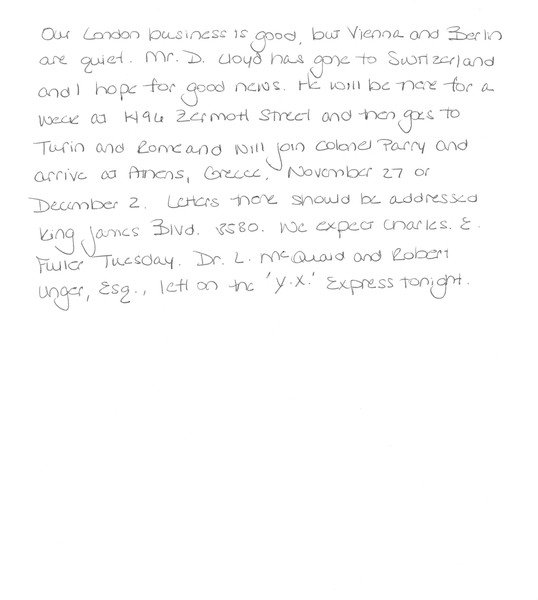 Our London business is good, but Vienna and Berlin
are quiet. Mr. D. Lloyd has gone to Switzerland
and I hope for good news. He will be there for a
week at 1496 Zermott Street and then goes to
Turin and Rome and will join Colonel Parry and
arrive at Athens, Greece, November 27 or
December 2. Letters there should be addressed
King James Blvd. 3580. We expect Charles. E.
Fuller Tuesday. Dr. L. McQuaid and Robert
Unger, Esq., left on the 'Y.X.' Express tonight.